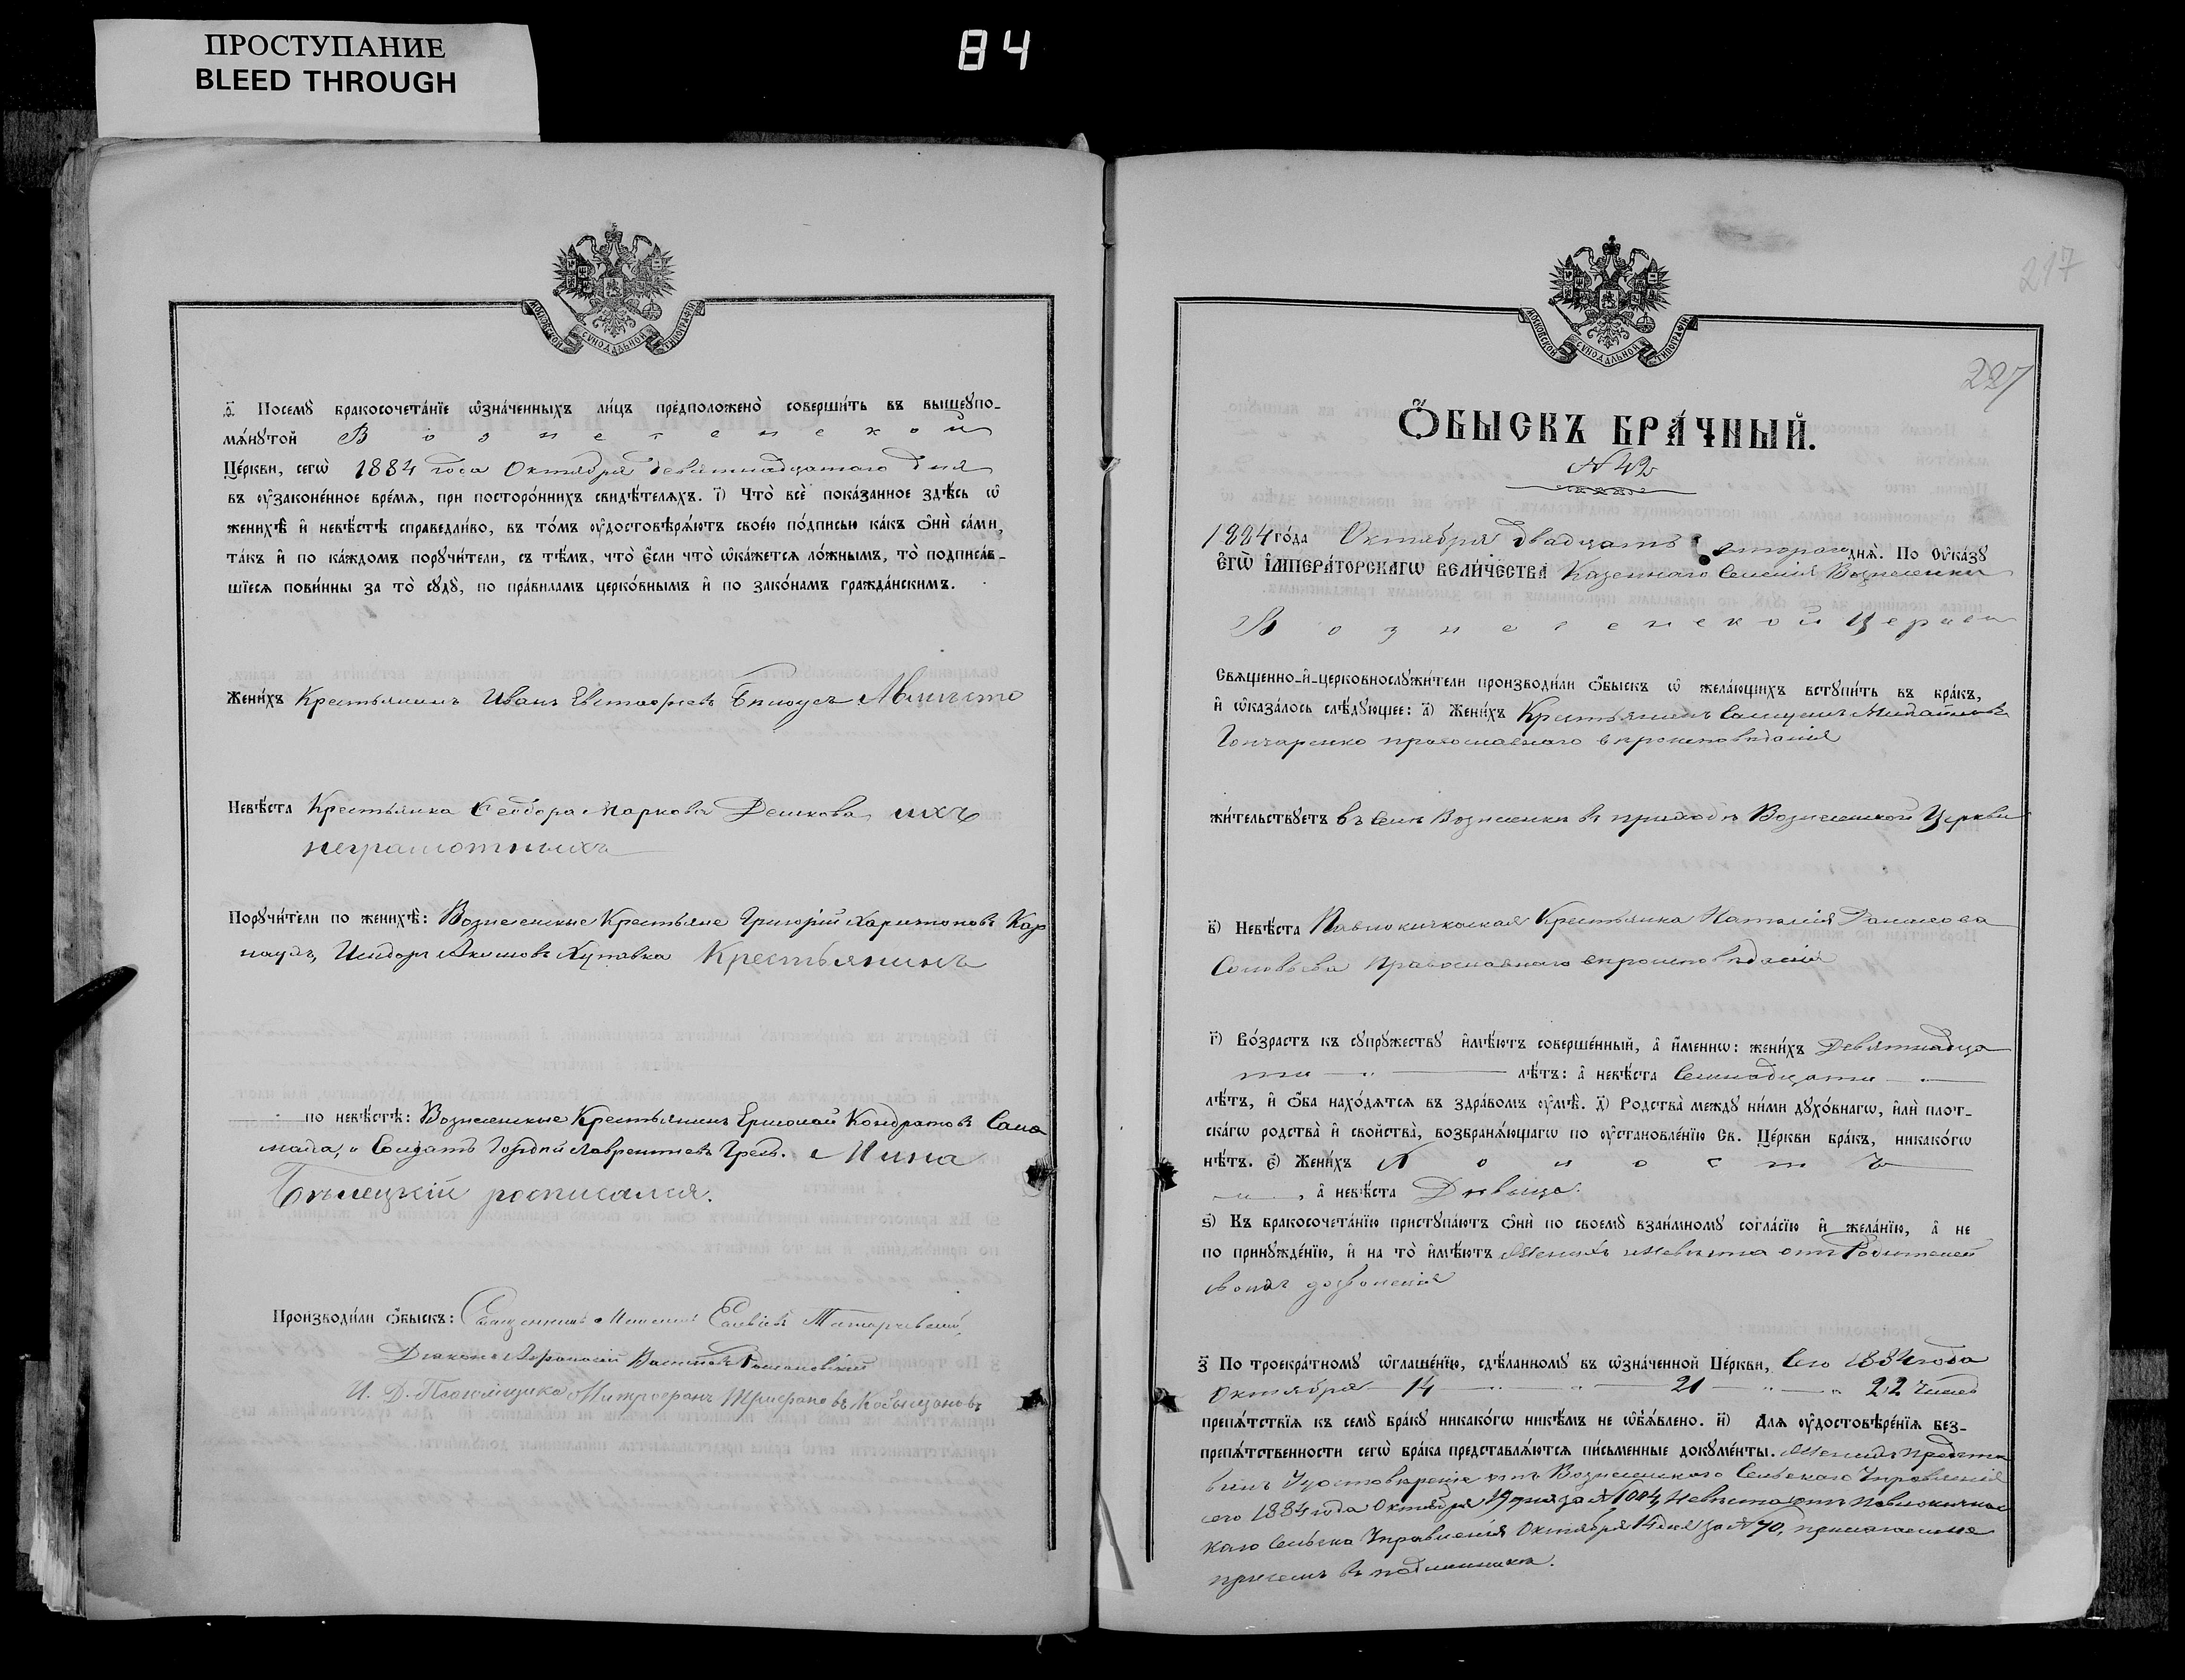 ПРОСТУПАНИЕ
BLEED THROUGH
84
МОСКОВСКОЙ СУНОДАЛЬНОЙ ТИПОГРАФІИ
д҃) Посемꙋ бракосочета́нїе ѡ҆зна́ченныхъ ли́цъ предположено̀ соверши́ть въ вышеꙋпо-
мѧ́нꙋтой Вознесенской
Це́ркви, сегѡ̀ 1884 года Октября девятнадцатаго дня
въ ᲂу҆зако́ненное вре́мѧ, при посторо́ннихъ свидѣ́телѧхъ. і҃) Что̀ всѐ пока́занное здѣ́сь ѡ҆
женихѣ̀ и҆ невѣ́стѣ справедли́во, въ то́мъ ᲂу҆достовѣрѧ́ютъ свое́ю по́дписью ка́къ ѻ҆нѝ са́ми,
та́къ и҆ по ка́ждомъ порꙋчи́тели, съ тѣ́мъ, что̀ є҆́сли что̀ ѡ҆ка́жетсѧ ло́жнымъ, то̀ подписа́в-
шїесѧ пови́нны за то̀ сꙋдꙋ̀, по пра́виламъ церко́внымъ и҆ по зако́намъ гражда́нскимъ.
Жени́хъ Крестьянинъ Иванъ Евстафіевъ
Невѣ́ста Крестьянка Феодора Маркова Дешкова ихъ
неграмотныхъ
Порꙋчи́тели по женихѣ̀: Вознесенские Крестьяне Григорій Харитоновъ Кар
наухъ, Исидоръ Акимовъ Крестьянинъ
по невѣ́стѣ: Вознесенские Крестьянинъ Кондратовъ
и Солдатъ Гордѣй Лаврентіевъ Мина
Бѣлецкій росписался.
Производи́ли ѻ҆́быскъ: Священникъ
Діаконъ Афанасій
И. Д. Псаломщика Митрофанъ
217
227
МОСКОВСКОЙ СУНОДАЛЬНОЙ ТИПОГРАФІИ
Ѻ҆́БЫСКЪ БРА́ЧНЫЙ.
№ 42
1884 го́да Октября двадцать втораго днѧ̀. По ᲂу҆ка́зꙋ
Є҆гѡ̀ І҆мпера́торскагѡ вели́чества Казеннаго Селенія Вознесенки
Вознесенской Церкви
Свѧщенно-и҆-церковнослꙋжи́тели производи́ли ѻ҆́быскъ ѡ҆ жела́ющихъ встꙋпи́ть въ бра́къ,
и҆ ѡ҆каза́лось слѣ́дꙋющее: а҃) Жени́хъ Крестьянинъ Самуилъ Михайловъ
Гончаренко православнаго вѣроисповѣданія
жи́тельствꙋетъ въ Селѣ Вознесенки въ приходѣ Вознесенской Церкви
в҃) Невѣ́ста Павлокичкаская Крестьянка Наталія Данилова
Соловьева Православнаго вѣроисповѣданія
г҃) Во́зрастъ къ сꙋпрꙋ́жествꙋ и҆мѣ́ютъ соверше́нный, а҆ и҆́меннѡ: жени́хъ Девятнадца
ти лѣ́тъ: а҆ невѣ́ста Семнадцати
лѣ́тъ, и҆ ѻ҆́ба нахо́дѧтсѧ въ здра́вомъ ᲂу҆мѣ̀. д҃) Родства̀ междꙋ̀ ни́ми дꙋхо́внагѡ, и҆лѝ плот-
ска́гѡ родства̀ и҆ сво́йства̀, возбранѧ́ющагѡ по ᲂу҆становле́нїю Св. Це́ркви бра́къ, никако́гѡ
нѣ́тъ. є҃) Жени́хъ Холостъ
, а҆ невѣ́ста Дѣвица.
ѕ҃) Къ бракосочета́нїю пристꙋпа́ютъ ѻ҆нѝ по своемꙋ̀ взаи́мномꙋ согла́сїю и҆ жела́нїю, а҆ не
по принꙋжде́нїю, и҆ на то̀ и҆мѣ́ютъ Женихъ и Невѣста отъ Родителей
своихъ дозволенія
з҃) По троекра́тномꙋ ѡ҆глаше́нїю, сдѣ́ланномꙋ въ ѡ҆зна́ченной Це́ркви, Сего 1884 года
Октября 14 21 22 чиселъ
препѧ́тствїѧ къ семꙋ̀ бра́кꙋ никако́гѡ никѣ́мъ не ѡ҆б̾ѧ́влено. и҃) Длѧ ᲂу҆достовѣре́нїѧ без-
препѧ́тственности сегѡ̀ бра́ка представлѧ́ютсѧ пи́сьменные докꙋме́нты. Женихъ предста
вилъ Удостовѣреніе отъ Вознесенскаго Сельскаго Управленія
сего 1884 года Октября 19 дня за № 1084, Невѣста отъ Павлокичкас
каго Сельска Управленія Октября 14 дня за № 70, прилагаемые
при семъ въ подлинникѣ.